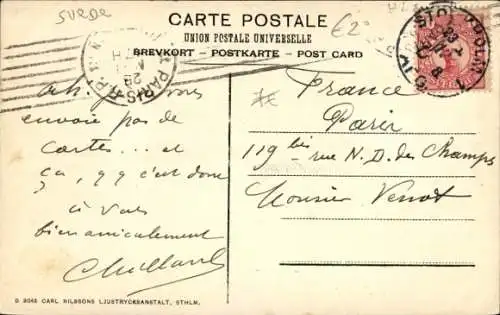 SUEDE
CARTE POSTALE
€2⁰
UNION POSTALE UNIVERSELLE
BREVKORT - POSTKARTE - POST CARD
PARIS
STOCKHOLM 1
Ah, je vous
envoie pas de
cartes... et
ça, qq c'est donc
à vous
bien amicalement
France
Paris
119 bis rue N. D. des Champs
Monsieur Venot
D 3045 CARL NILSSONS LJUSTRYCKSANSTALT, STHLM.